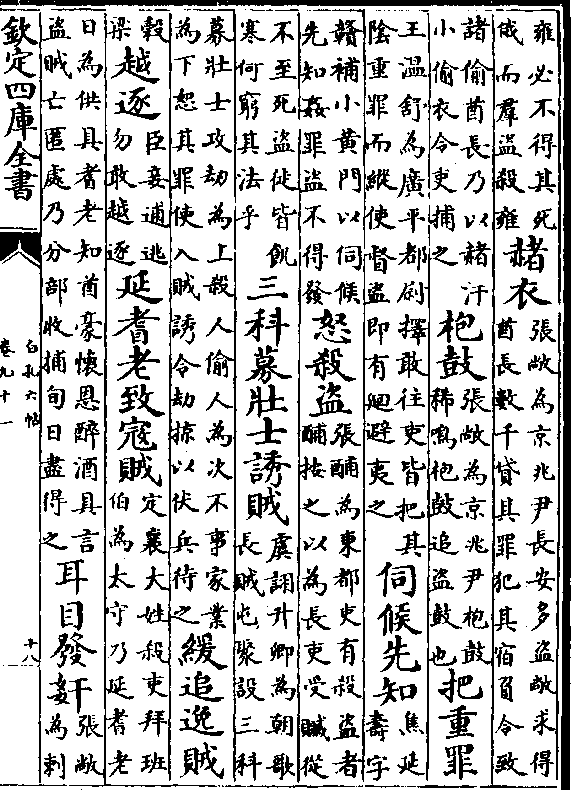 雍必不得其死
俄而羣盜殺雍
赭衣
張敞為京兆尹長安多盜敞求得
酋長數千貸其罪犯其宿負令致
諸偷酋長乃以赭汗
小偷衣令吏捕之
枹鼓
張敞為京兆尹枹鼓
稀鳴枹鼓追盜鼓也
把重罪
王溫舒為廣平都尉擇敢往吏皆把其
陰重罪而縱使督盜即有廻避夷之
伺候先知
焦延
壽字
贛補小黃門以伺候
先知姦罪盜不得發
怒殺盜
張酺為東都吏有殺盜者
酺拷之以為長吏受贓從
不至死盜徒皆飢
寒何窮其法乎
三科募壯士誘賊
虞詡升卿為朝歌
長賊屯聚設三科
募壯士攻劫為上殺人偷人為次不事家業
為下恕其罪使入賊誘令劫掠以伏兵待之
緩追逸賊
穀
梁
越逐
臣妾逋逃
勿敢越逐
延耆老致寇賊
定襄大姓殺吏拜班
伯為太守乃延耆老
日為供具耆老知酋豪懷恩醉酒具言
盜賊亡匿處乃分部收捕旬日盡得之
耳目發姧
張敞
為刺
欽定四庫全書
白孔六帖
卷九十一
十八